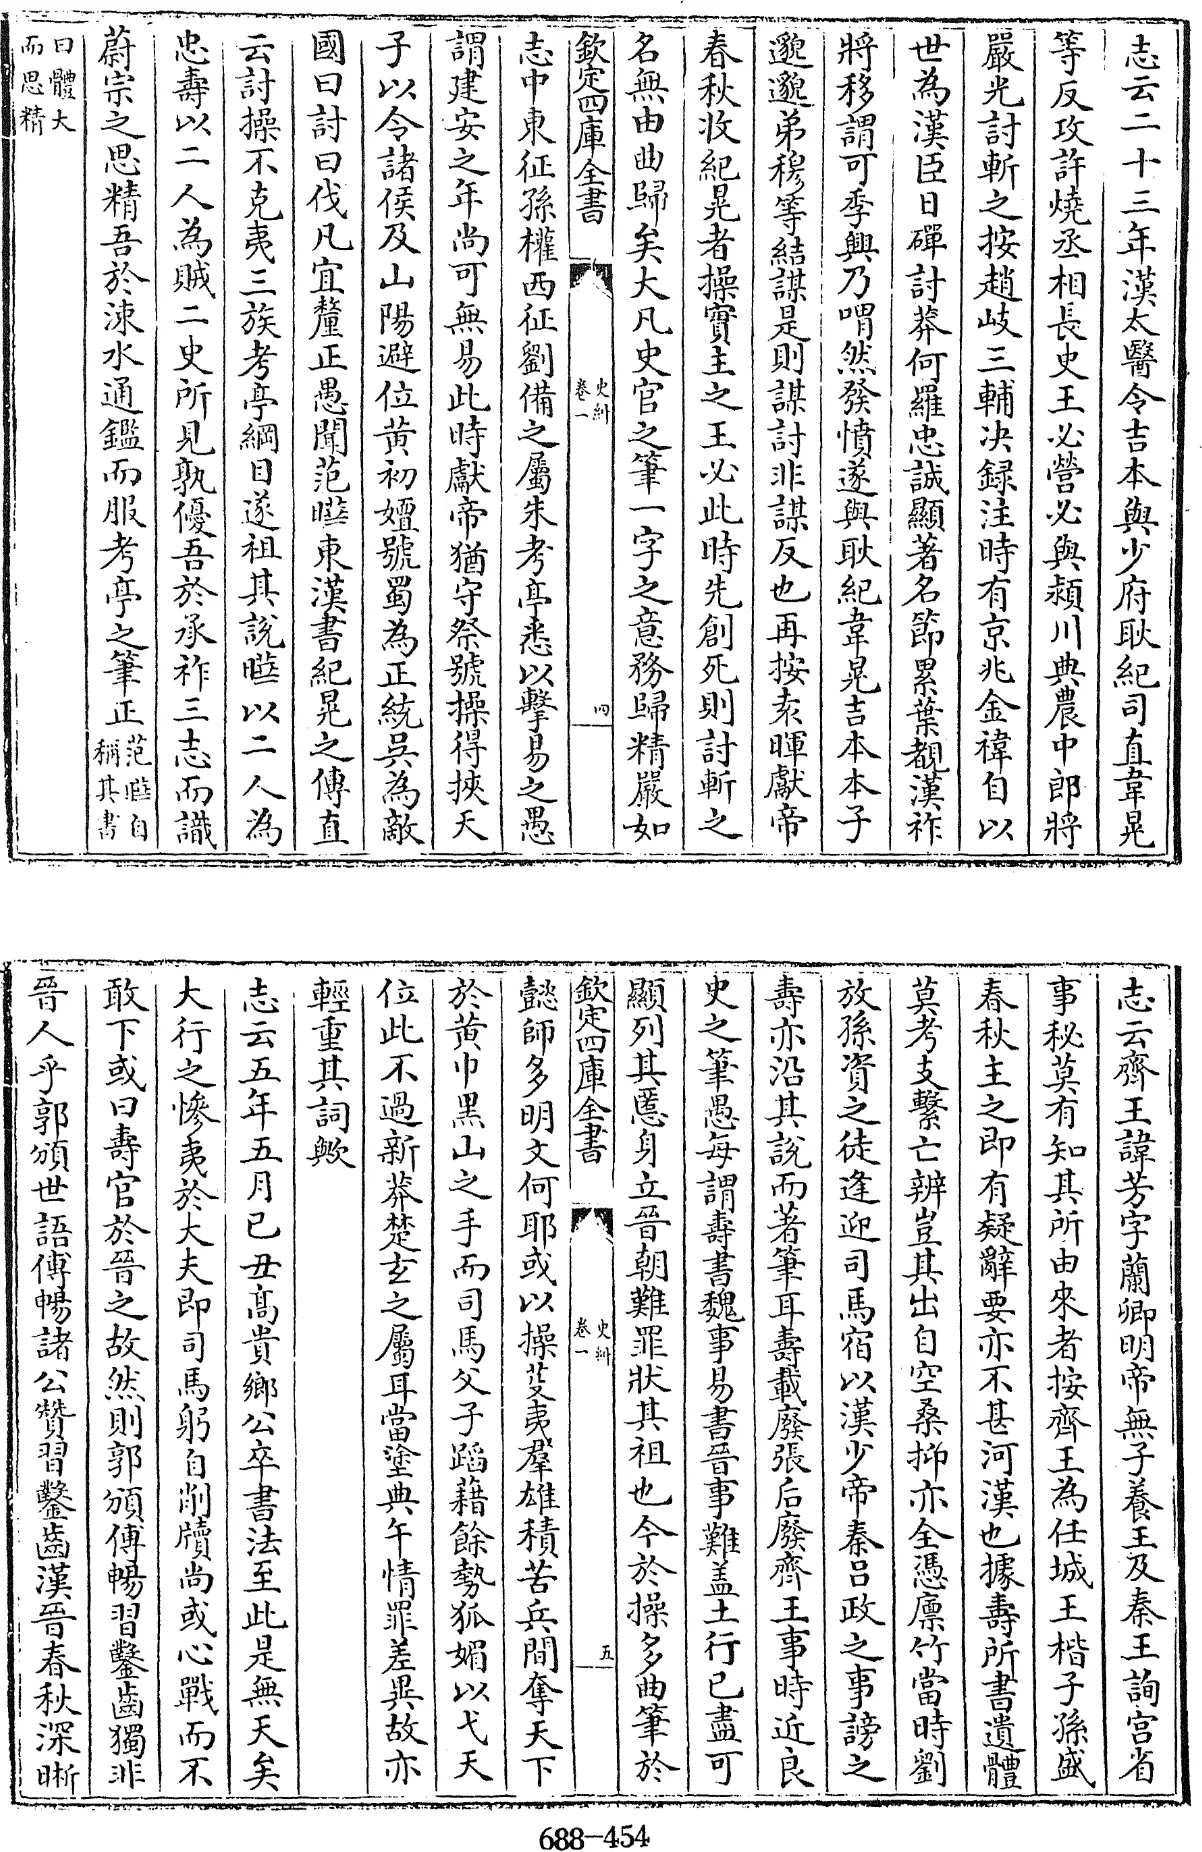 志云二十三年漢太醫令吉本與少府耿紀司直韋晃
等反攻許燒丞相長史王必營必與潁川典農中郎將
嚴光討斬之按趙岐三輔決録注時有京兆金禕自以
世為漢臣日磾討莽何羅忠誠顯著名節累葉覩漢祚
將移謂可季興乃喟然發憤遂與耿紀韋晃吉本本子
邈邈弟穆等結謀是則謀討非謀反也再按袁暉獻帝
春秋收紀晃者操實主之王必此時先創死則討斬之
名無由曲歸矣大凡史官之筆一字之意務歸精嚴如
欽定四庫全書
史糾
卷一
四
志中東征孫權西征劉備之屬朱考亭悉以擊易之愚
謂建安之年尚可無易此時獻帝猶守祭號操得挾天
子以令諸侯及山陽避位黄初嬗號蜀為正統吳為敵
國曰討曰伐凡宜釐正愚聞范曄東漢書紀晃之傳直
云討操不克夷三族考亭綱目遂祖其說曄以二人為
忠壽以二人為賊二史所見孰優吾於承祚三志而識
蔚宗之思精吾於涑水通鑑而服考亭之筆正范曄自稱其書
曰體大而思精
志云齊王諱芳字蘭卿明帝無子養王及秦王詢宫省
事秘莫有知其所由來者按齊王為任城王楷子孫盛
春秋主之即有疑辭要亦不甚河漢也據壽所書遺體
莫考支繫亡辨豈其出自空桑抑亦全憑廪竹當時劉
放孫資之徒逢迎司馬宿以漢少帝秦吕政之事謗之
壽亦沿其說而著筆耳壽載廢張后廢齊王事時近良
史之筆愚每謂壽書魏事易書晉事難盖土行已盡可
顯列其慝身立晉朝難罪狀其祖也今於操多曲筆於
欽定四庫全書
史糾
卷一
五
懿師多明文何耶或以操芟夷羣雄積苦兵間奪天下
於黄巾黑山之手而司馬父子蹈藉餘勢狐媚以弋天
位此不過新莽楚玄之屬耳當塗典午情罪差異故亦
輕重其詞歟
志云五年五月己丑髙貴鄉公卒書法至此是無天矣
大行之慘夷於大夫即司馬躬自削牘尚或心戰而不
敢下或曰壽官於晉之故然則郭頒傅暢習鑿齒獨非
晉人乎郭頒世語傅暢諸公贊習鑿齒漢晉春秋深晰
688-454